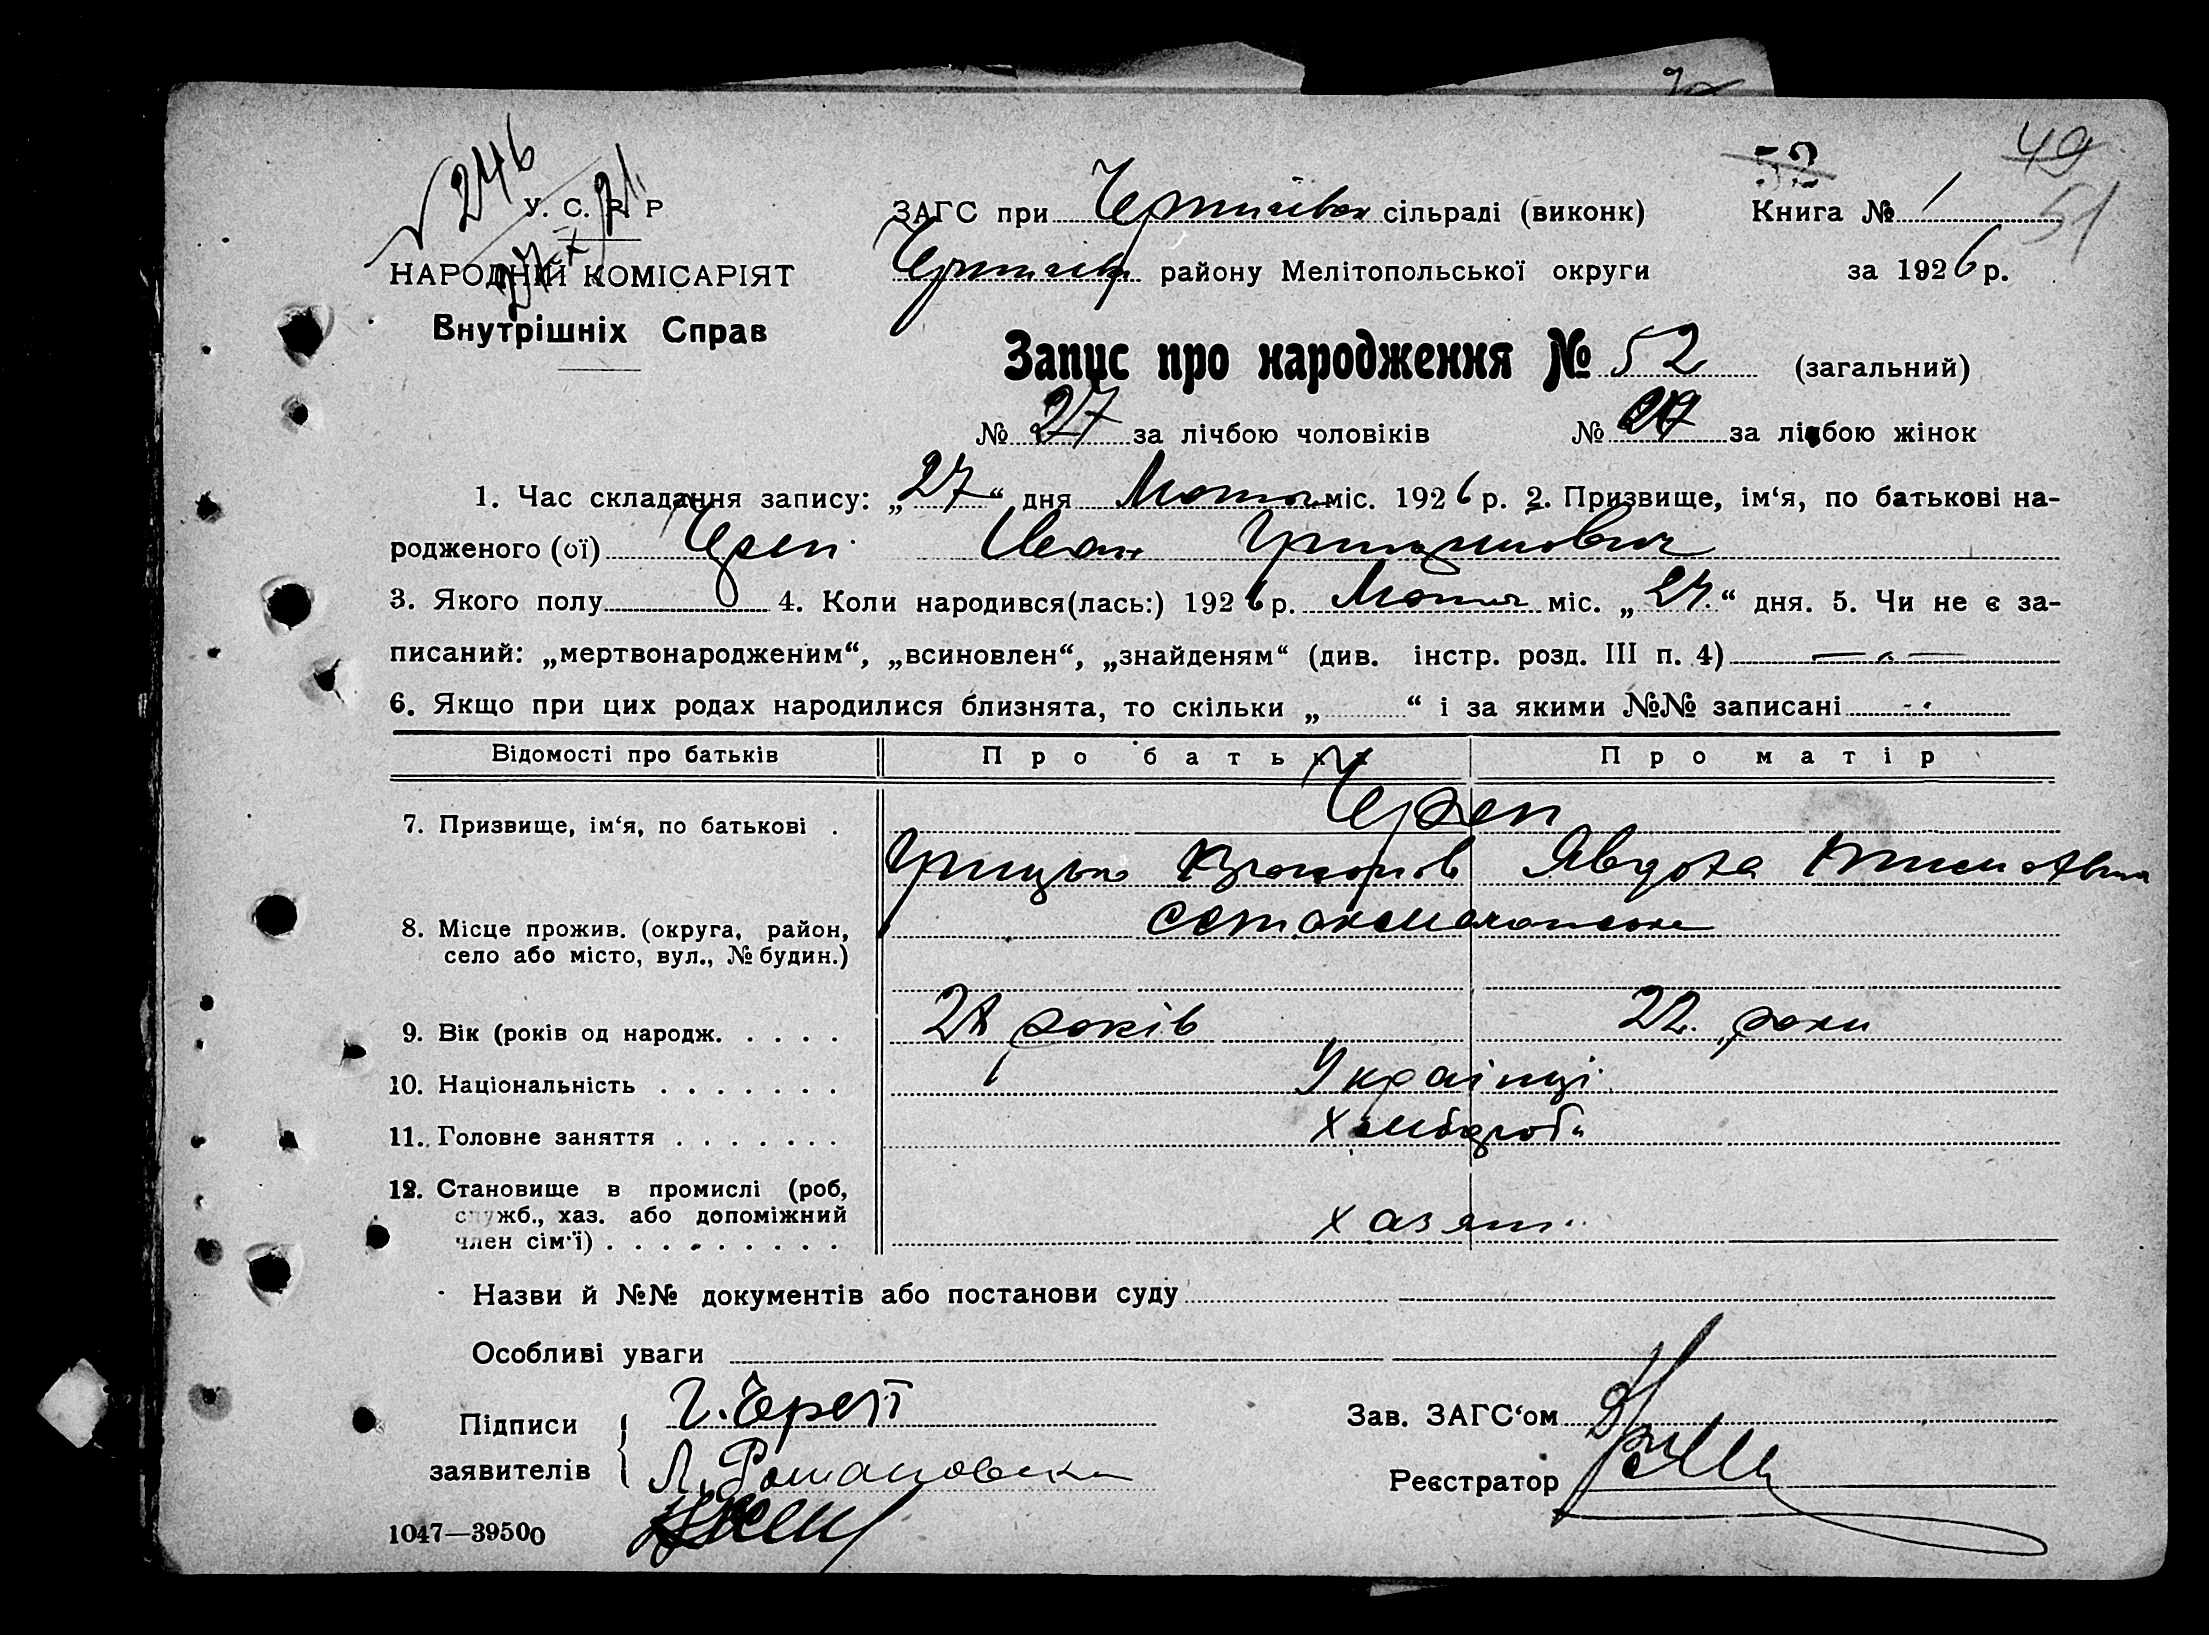 52 49
51
246
У. С. Р. Р
НАРОДНІЙ КОМІСАРІЯТ
Внутрішніх Справ
ЗАГС при сільраді (виконк) Книга № 1
району Мелітопольської округи за 1926 р.
Запис про народження № 52 (загальний)
№ 27 за лічбою чоловіків № за лічбою жінок
1. Час складання запису: „27“ дня міс. 1926 р. 2. Призвище, ім‘я, по батькові на-
родженого (ої) Череп Иван Грицькович
3. Якого полу 4. Коли народився(лась:) 1926 р. міс. „27.“ дня. 5. Чи не є за-
писаний: „мертвонародженим“, „всиновлен“, „знайденям“ (див. інстр. розд. III п. 4)
6. Якщо при цих родах народилися близнята, то скільки „ “ і за якими №№ записані
Відомості про батьків Про батька Про матір
7. Призвище, ім‘я, по батькові . Череп
Грицько Явдоха
8. Місце прожив. (округа, район,
село або місто, вул., № будин.)
9. Вік (років од народж. . . . . років 22. роки
10. Національність . . . . . . . Українці
11. Головне заняття . . . . . . . Хлібороби
12. Становище в промислі (роб,
служб., хаз. або допоміжний
член сім‘ї) . . . . . . . . . хазяї
Назви й №№ документів або постанови суду
Особливі уваги
Підписи Г. Череп Зав. ЗАГС‘ом
заявителів Л. Романовска Реєстратор
1047—39500